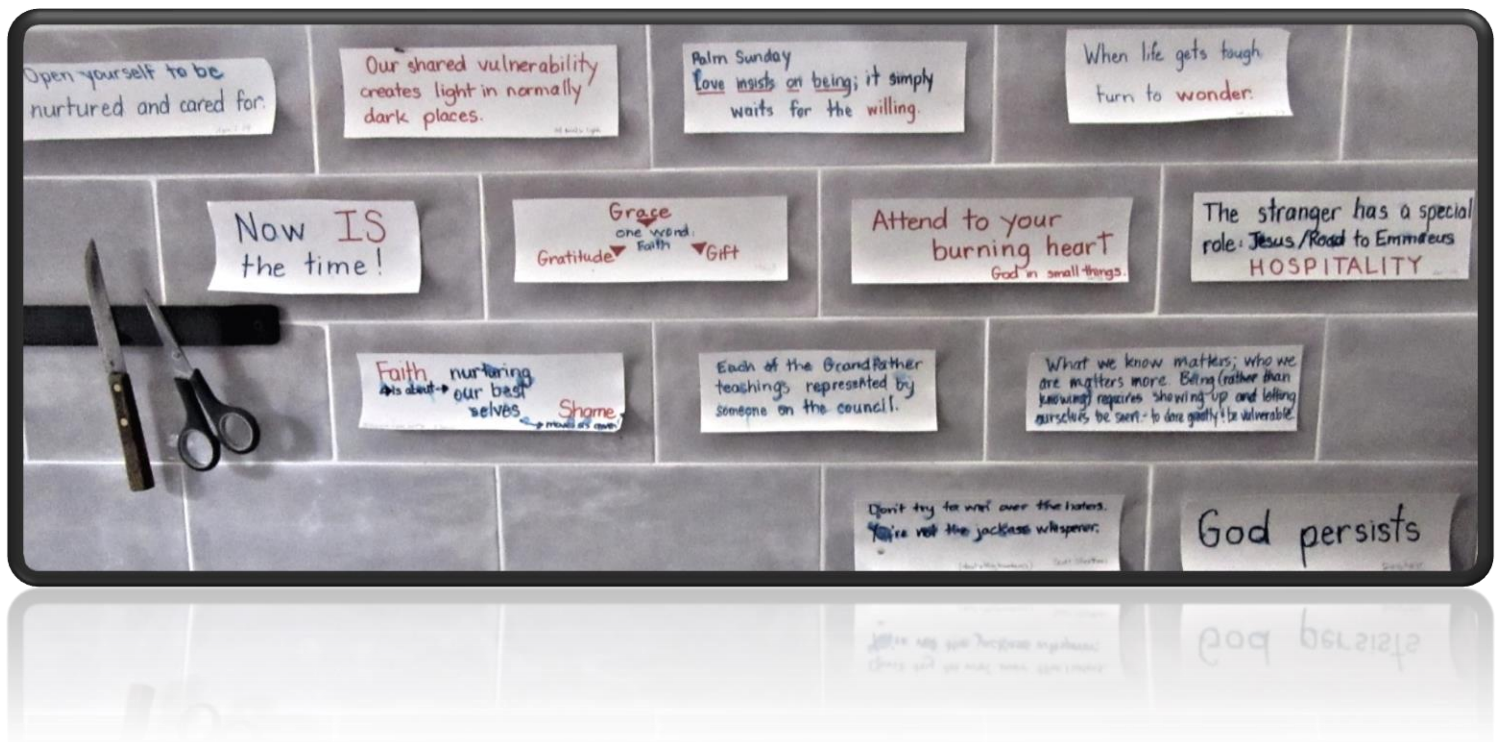 Open yourself to be
nurtured and cared for.
Our shared vulnerability
creates light in normally
dark places.
Palm Sunday
Love insists on being; it simply
waits for the willing.
When life gets tough
turn to wonder.
Now IS
the time!
Grace
one word:
Faith
Gratitude
Gift
Attend to your
burning heart
God in small things.
The stranger has a special
role: Jesus/Road to Emmaeus
HOSPITALITY
Faith nurturing
is about → our best
selves Shame
Each of the Grandfather
teachings represented by
someone on the council.
What we know matters; who we
are matters more. Being (rather than
knowing) requires showing-up and letting
ourselves be seen - to dare greatly & be vulnerable
Don't try to win over the haters.
You're not the jackass whisperer.
God persists